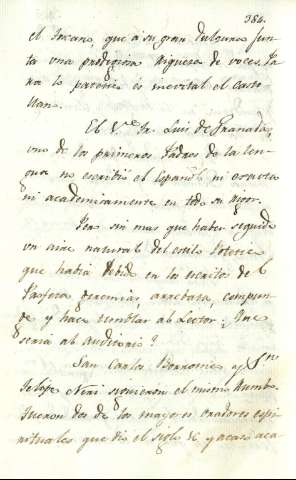 384.
el Toscano, que á su gran dulzura jun-
ta una prodigiosa riqueza de voces. Pa
ra lo patetico es inevital el caste
llano.
El V.e Fr. Luis de Granada,
uno de los primeros Padres de la len-
gua no escribió el Español ni
ni academicamente en todo su rigor.
Pero sin mas que haber seguido
un aire natural del estilo
que habia bebido en los escritos de
Profeta Jeremias, arrebata, compun-
de y hace temblar al Lector: Que
seria al auditorio?
San Carlos Borromeo y S.n
Felipe Neri siguieron el mismo rumbo.
Fueron dos de los mayores oradores espi-
rituales que dió el siglo y acaso aca